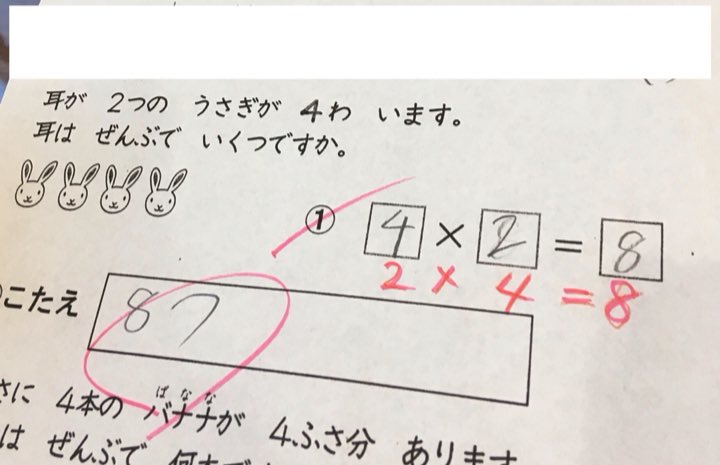 耳が 2つの うさぎが 4わ います。
耳は ぜんぶで いくつですか。
① 4 × 2 = 8
2 × 4 = 8
こたえ 8つ
さに 4本の バナナが 4ふさ分 あります
ばなな
は ぜんぶで 何本で